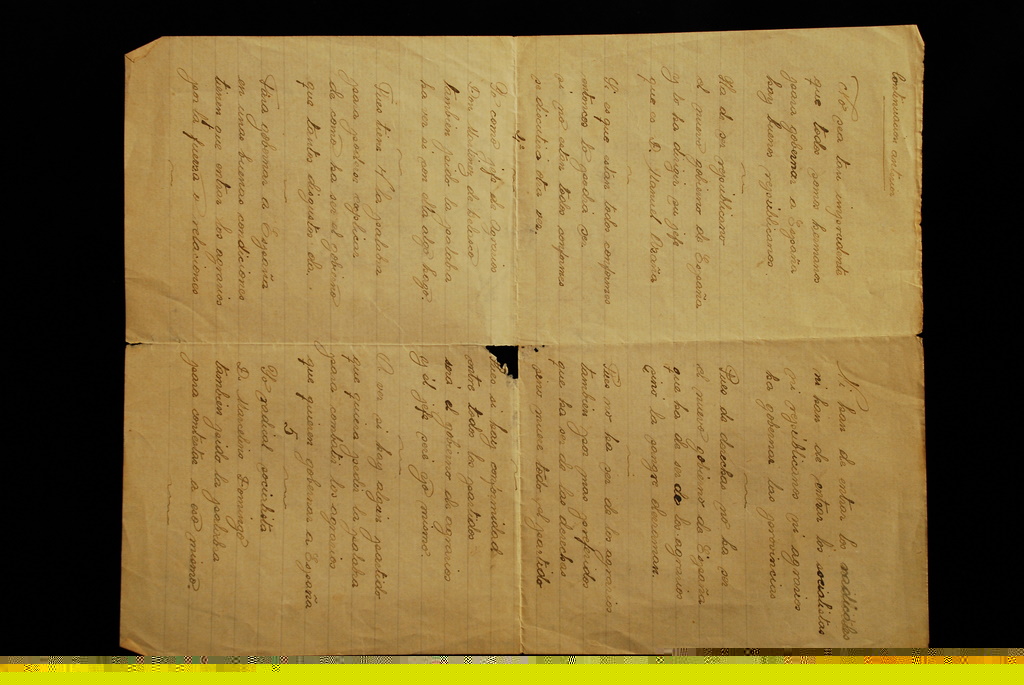 Continuacion anterior
No sea tan imprudente
que todos somos humanos
para gobernar a España
hay buenos republicanos
Ha de ser republicano
el nuevo gobierno de España
y lo ha dirigir su jefe
que es D. Manuel Azaña
Si es que estan todos conformes
entonces to podia ser
si no estan todos conformes
se discutira otra vez.
4ª
Yo como jefe de agrario
Don Martinez de Velasco
tambien pido la palabra
ha ver si con ella algo hago.
Pues tiene V la palabra
para poder explicar
de como ha ser el Gobierno
que tantos disgustos da.
Para gobernar a España
en unas buenas condiciones
tienen que entrar los agrarios
por la fuerza o relaciones
Ni han de entrar los radicales
ni han de entrar los socialistas
ni republicanos ni agrarios
ha gobernar las provincias
Pues de derechas no ha ser
el nuevo gobierno de España
que ha de ser de los agrarios
sino la sangre derraman.
Pues no ha ser de los agrarios
tambien por mas preferidos
que ha ser de las derechas
sino muere todo el partido
Pues si hay conformidad
entre todos los partidos
será el gobierno de agrarios
y el jefe seré yo mismo.
A ver si hay algun partido
que quiera pedir la palabra
para combatir los agrarios
que quieren gobernar a España
5
Yo radical socialista
D. Marcelino Domingo
tambien pido la palabra
para contestar a eso mismo.